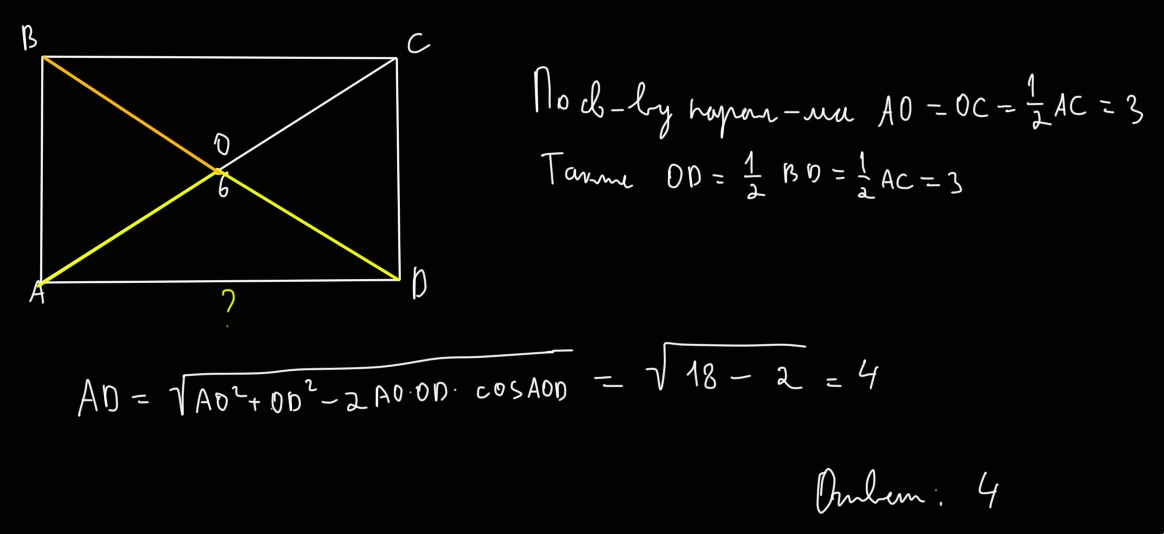 B
C
O
6
A
D
?
По св-ву парал-ма AO = OC = 1/2 AC = 3
Также OD = 1/2 BD = 1/2 AC = 3
AD = √(AO² + OD² - 2 AO·OD· cosAOD) = √(18 - 2) = 4
Ответ: 4